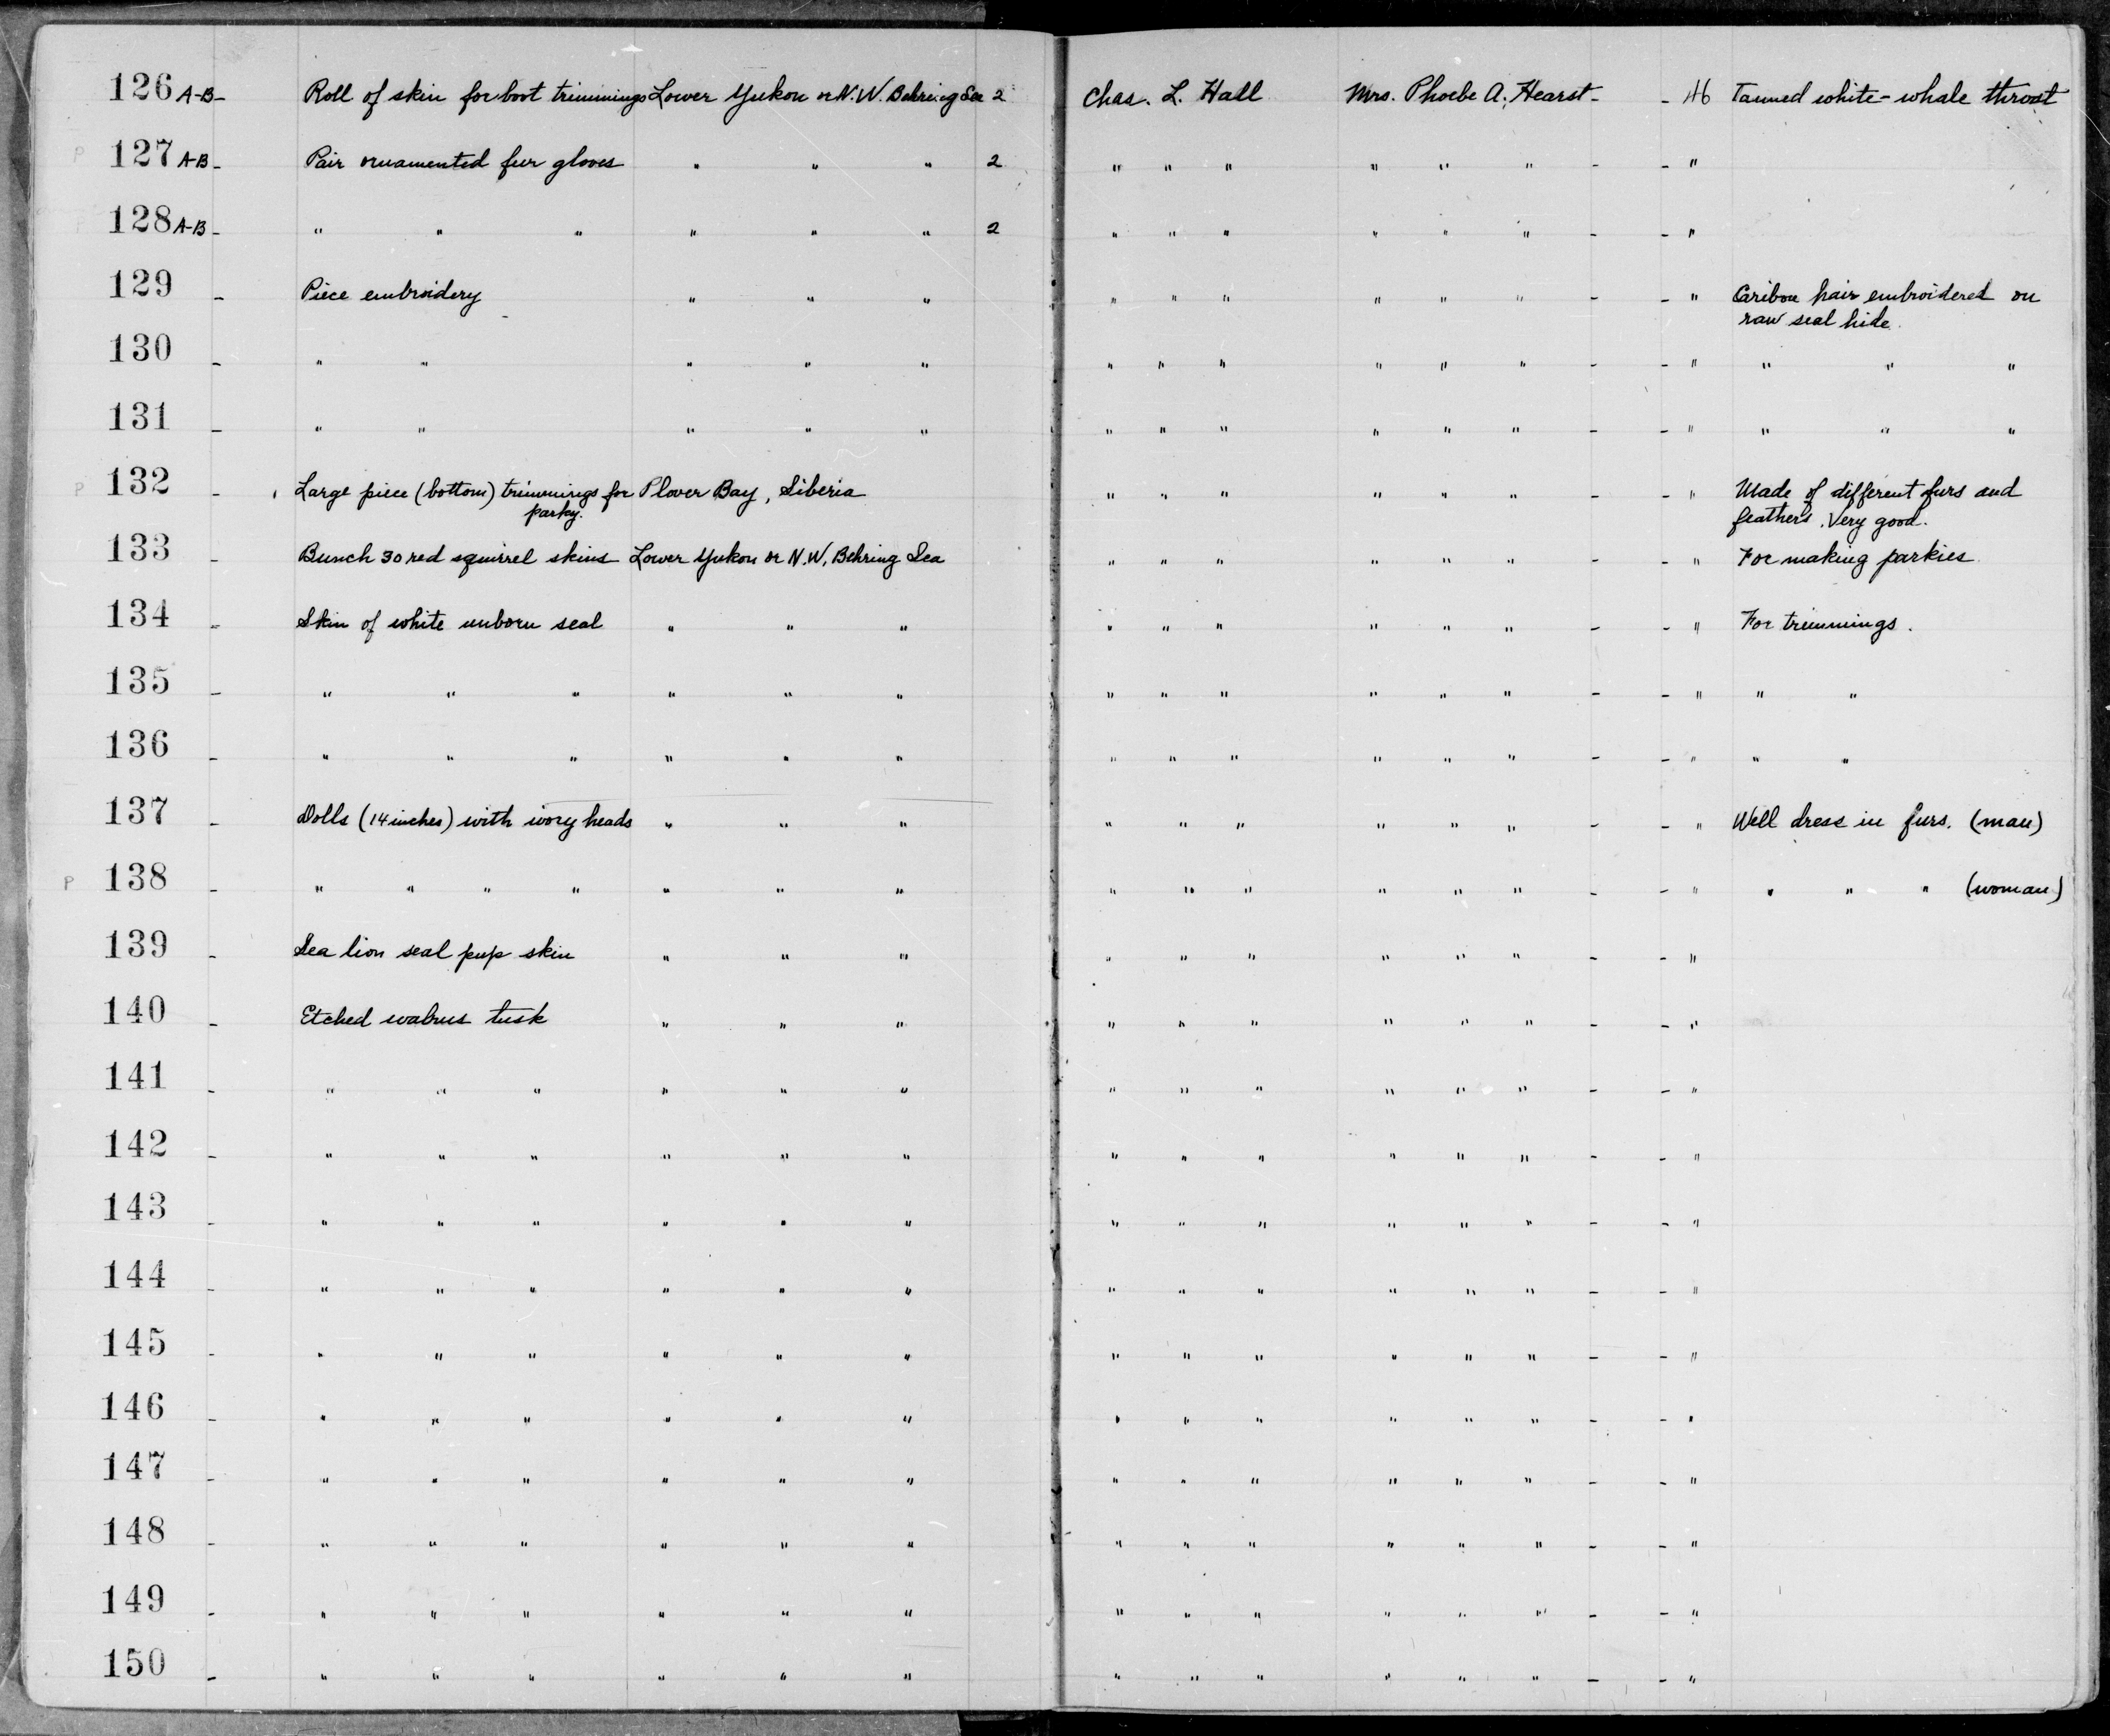 126 A-B - Roll of skin for boot trimmings Lower Yukon or N.W. Behring Sea 2 Chas. L. Hall Mrs. Phoebe A. Hearst - - 46 Tanned white-whale throat
P 127 A-B - Pair ornamented fur gloves " " " 2 " " " " " " - - "
P 128 A-B - " " " " " " 2 " " " " " " - - "
129 - Piece embroidery " " " " " " " " " - - " Caribou hair embroidered on
raw seal hide.
130 - " " " " " " " " " " " - - " " " "
131 - " " " " " " " " " " " - - " " " "
P 132 - Large piece (bottom) trimmings for Plover Bay, Siberia " " " " " " - - " Made of different furs and
parky. feathers. Very good.
133 - Bunch 30 red squirrel skins Lower Yukon or N.W. Behring Sea " " " " " " - - " For making parkies
134 - Skin of white unborn seal " " " " " " " " " - - " For trimmings.
135 - " " " " " " " " " " " " - - " " "
136 - " " " " " " " " " " " " - - " " "
137 - Dolls (14 inches) with ivory heads " " " " " " " " " - - " Well dress in furs. (man)
P 138 - " " " " " " " " " " " " " - - " " " " (woman)
139 - Sea lion seal pup skin " " " " " " " " " - - "
140 - Etched walrus tusk " " " " " " " " " - - "
141 - " " " " " " " " " " " " - - "
142 - " " " " " " " " " " " " - - "
143 - " " " " " " " " " " " " - - "
144 - " " " " " " " " " " " " - - "
145 - " " " " " " " " " " " " - - "
146 - " " " " " " " " " " " " - - "
147 - " " " " " " " " " " " " - - "
148 - " " " " " " " " " " " " - - "
149 - " " " " " " " " " " " " - - "
150 - " " " " " " " " " " " " - - "